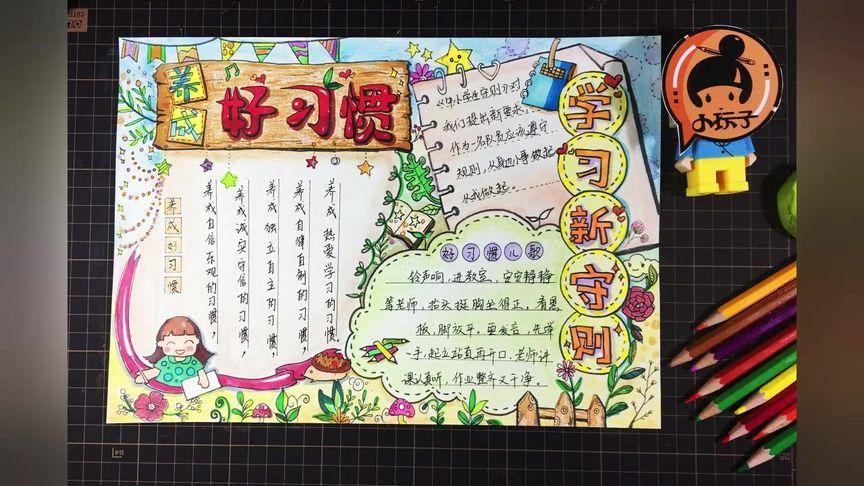 养成
好习惯
养成 热爱学习的习惯
养成自律自制的习惯,
养成 独立自主的习惯,
养成诚实守信的习惯,
养成自信乐观的习惯,
养成好习惯
《中小学生守则》对
我们提出新要求,
作为一名队员应该遵守
规则,从身边小事做起
从我做起。
学习新守则
好习惯儿歌
铃声响,进教室,安安静静
等老师,抬头挺胸坐得正。看黑
板,脚放平,要发言,先举
手,起立站直再开口,老师讲
课认真听,作业整齐又干净。
小玩子